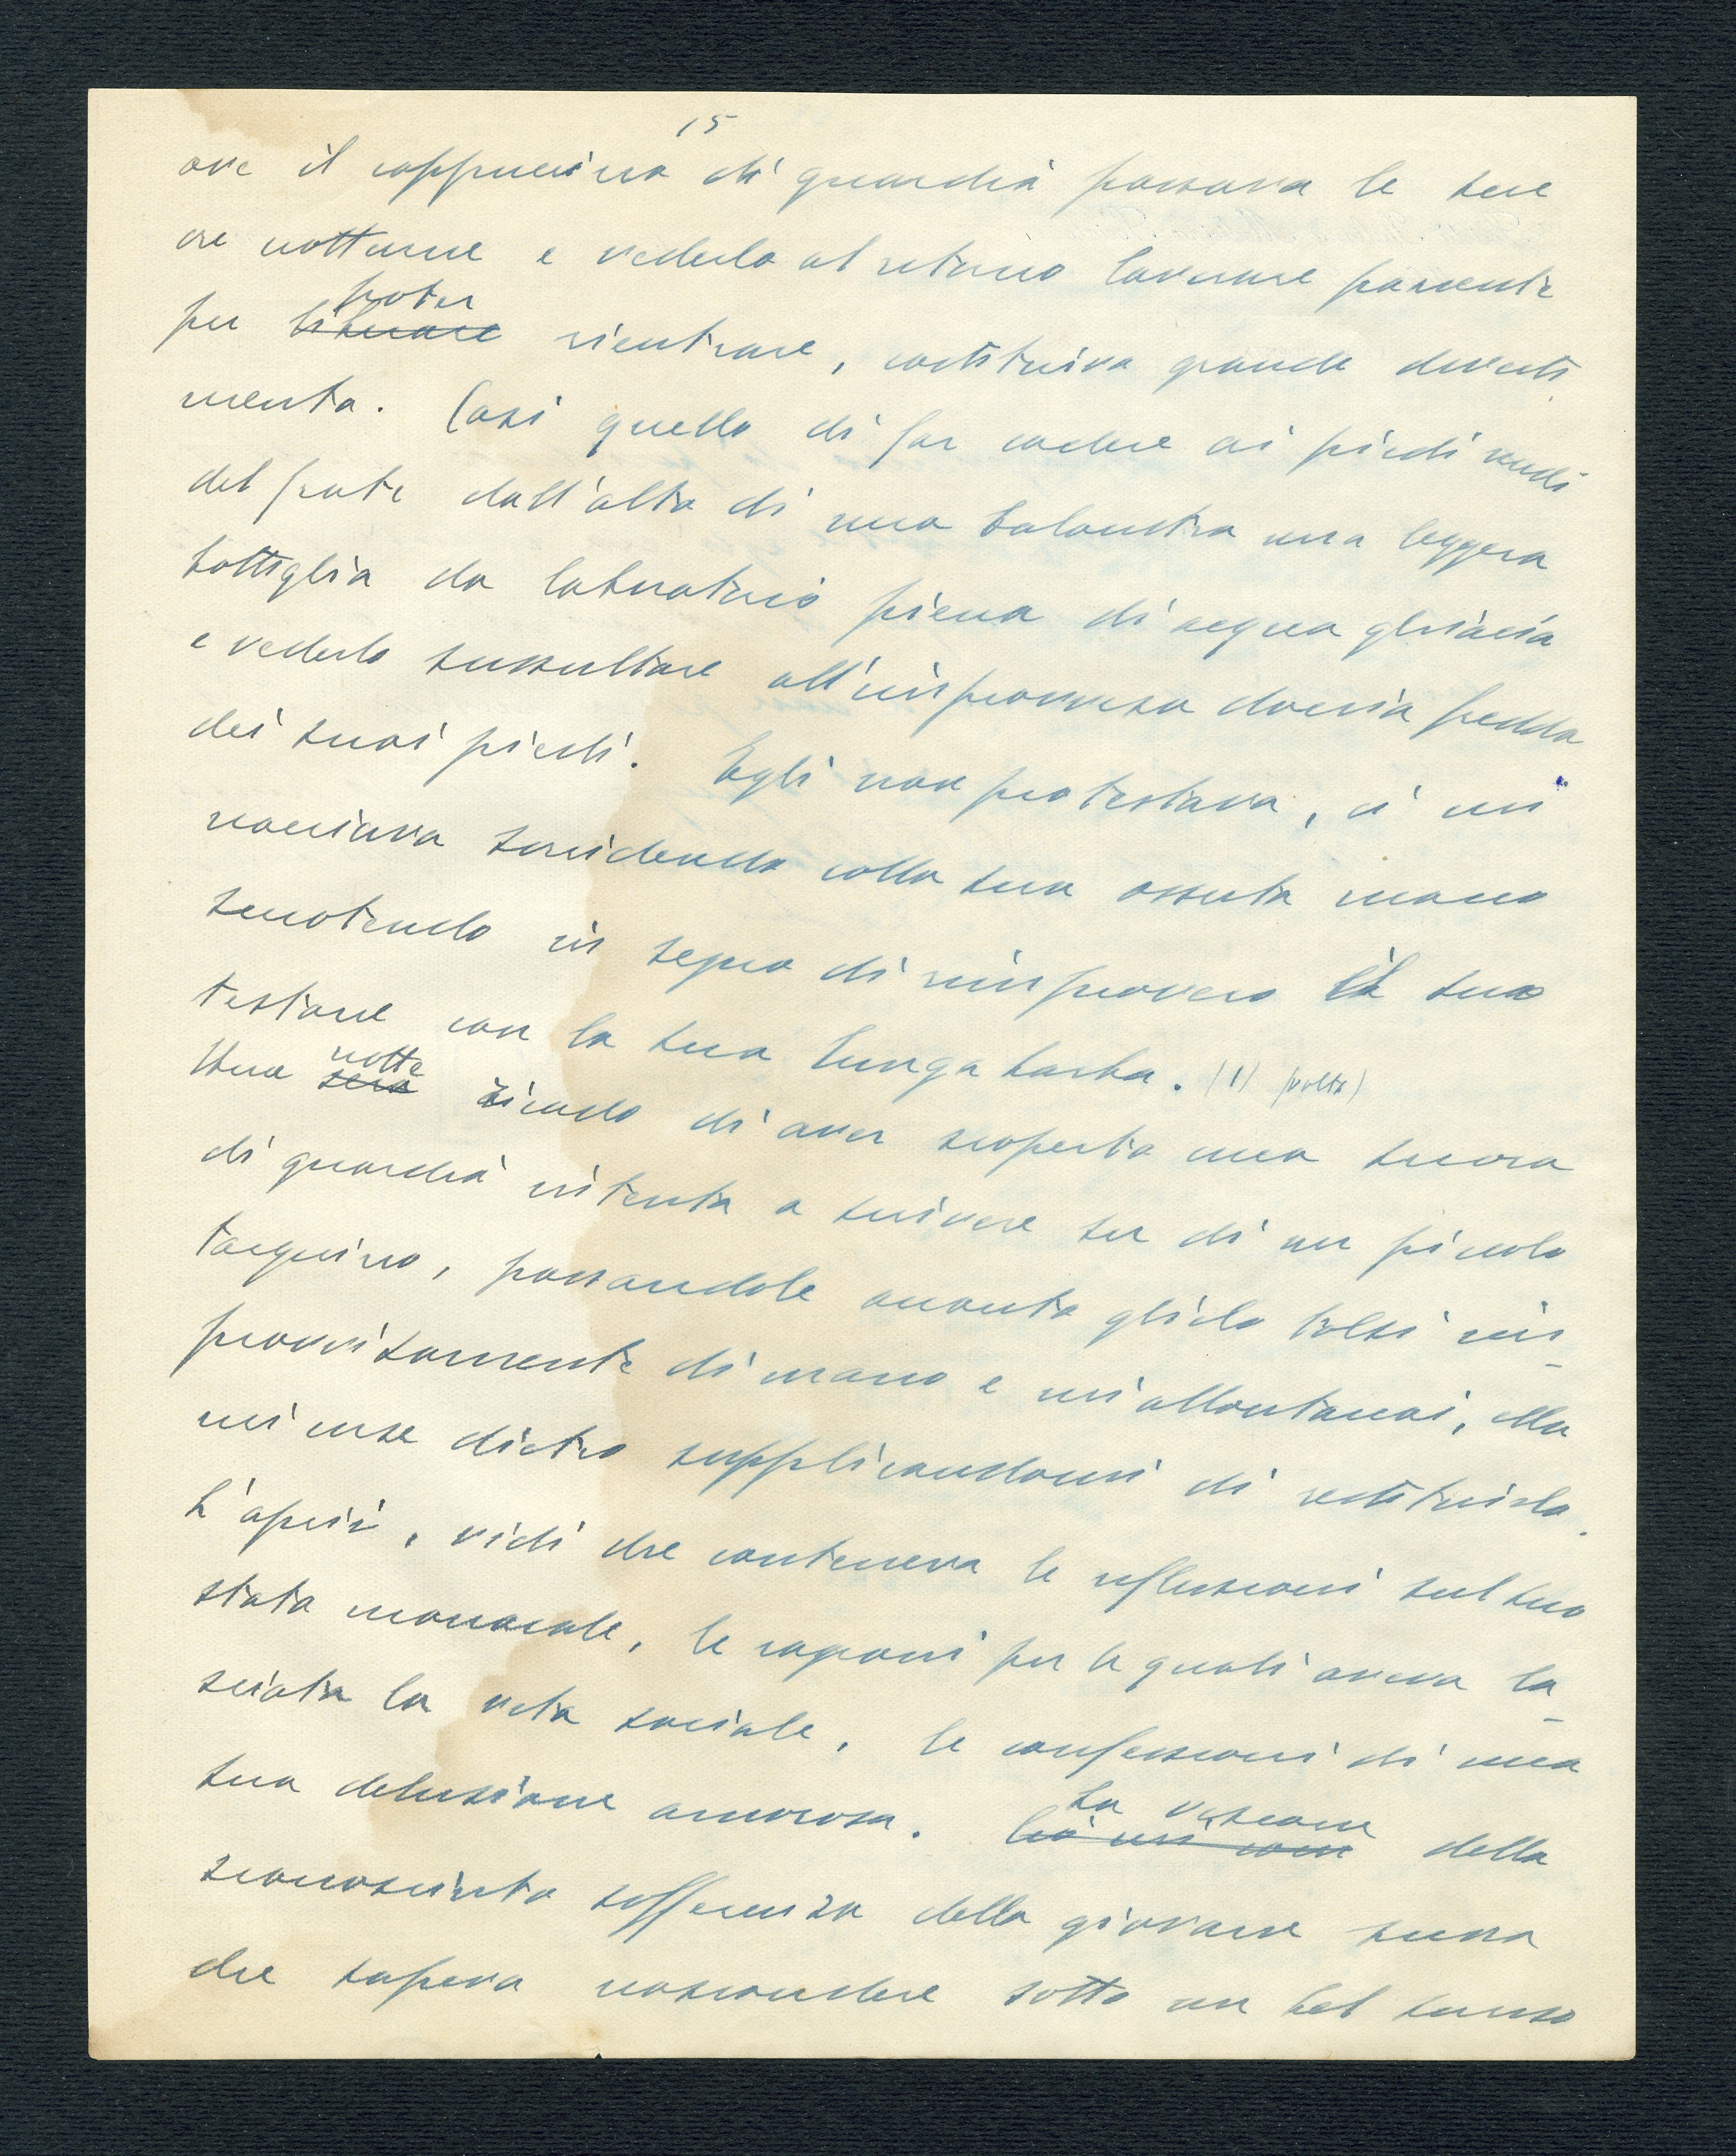 15
ove il cappuccino di guardia passava le sue
ore notturne e vederlo al ritorno lavorare paziente
poter
per liberare rientrare, costituiva grande diverti
mento. Così quello di far cadere ai piedi nudi
del frate dall'alto di una balaustra una leggera
bottiglia da laboratorio piena di acqua ghiacia
e vederlo sussultare all'improvvisa doccia fredda
dei suoi piedi. Egli non protestava, ci mi
nacciava sorridendo colla sua ossuta mano
scuotendo in segno di rimprovero il suo
testone con la sua lunga barba. (1) (volta)
notte
Una sera ricordo di aver scoperto una suora
di guardia intenta a scrivere su di un piccolo
taccuino, passandole avanti glielo tolsi im_
provvisamente di mano e mi allontanai, ella
mi corse dietro supplicandomi di restituirlo.
L'aprii, vidi che conteneva le riflessioni sul suo
stato monacale, le ragioni per le quali aveva la_
sciata la vita sociale, le confessioni di una
sua delusione amorosa.
La visione
Ciò mi della
sconosciuta sofferenza della giovane suora
che sapeva nascondere sotto un bel sorriso